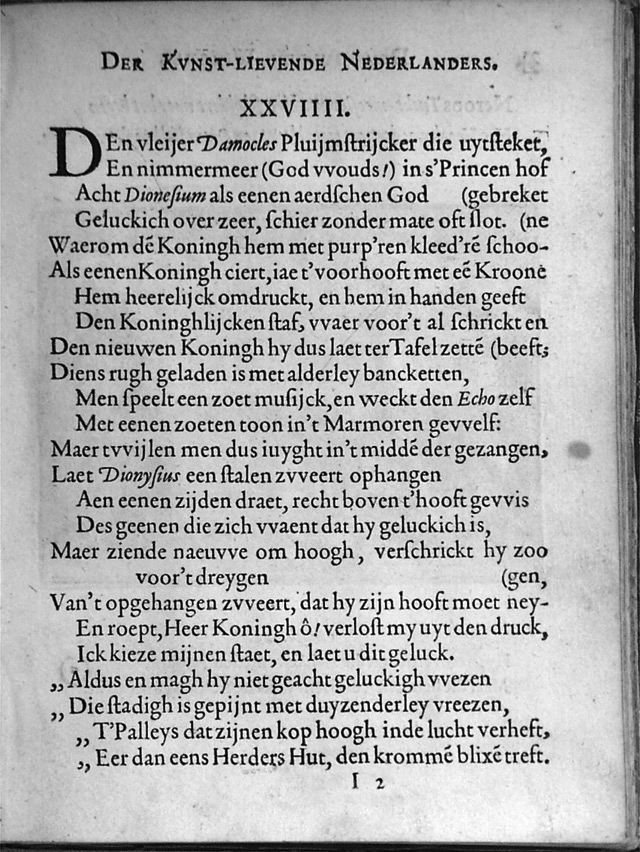 DER KVNST-LIEVENDE NEDERLANDERS.
XXVIIII.
DEn vleijer Damocles Pluijmſtrijcker die uytſteket,
En nimmermeer (God vvouds!) in s'Princen hof
Acht Dioneſium als eenen aerdſchen God (gebreket
Geluckich over zeer, ſchier zonder mate oft ſlot. (ne
Waerom dē Koningh hem met purp'ren kleed'rē ſchoo-
Als eenen Koningh ciert, iae t'voorhooft met eē Kroone
Hem heerelijck omdruckt, en hem in handen geeft
Den Koninghlijcken ſtaf, vvaer voor't al ſchrickt en
Den nieuwen Koningh hy dus laet ter Tafel zettē (beeft;
Diens rugh geladen is met alderley bancketten,
Men ſpeelt een zoet muſijck, en weckt den Echo zelf
Met eenen zoeten toon in't Marmoren gevvelf:
Maer tvvijlen men dus iuyght in't middē der gezangen,
Laet Dionyſius een ſtalen zvveert ophangen
Aen eenen zijden draet, recht boven t'hooft gevvis
Des geenen die zich vvaent dat hy geluckich is,
Maer ziende naeuvve om hoogh, verſchrickt hy zoo
voor't dreygen (gen,
Van't opgehangen zvveert, dat hy zijn hooft moet ney-
En roept, Heer Koningh ô! verloſt my uyt den druck,
Ick kieze mijnen ſtaet, en laet u dit geluck.
„Aldus en magh hy niet geacht geluckigh vvezen
„Die ſtadigh is gepijnt met duyzenderley vreezen,
„T'Palleys dat zijnen kop hoogh inde lucht verheft,
„Eer dan eens Herders Hut, den krommē blixē treft.
I 2